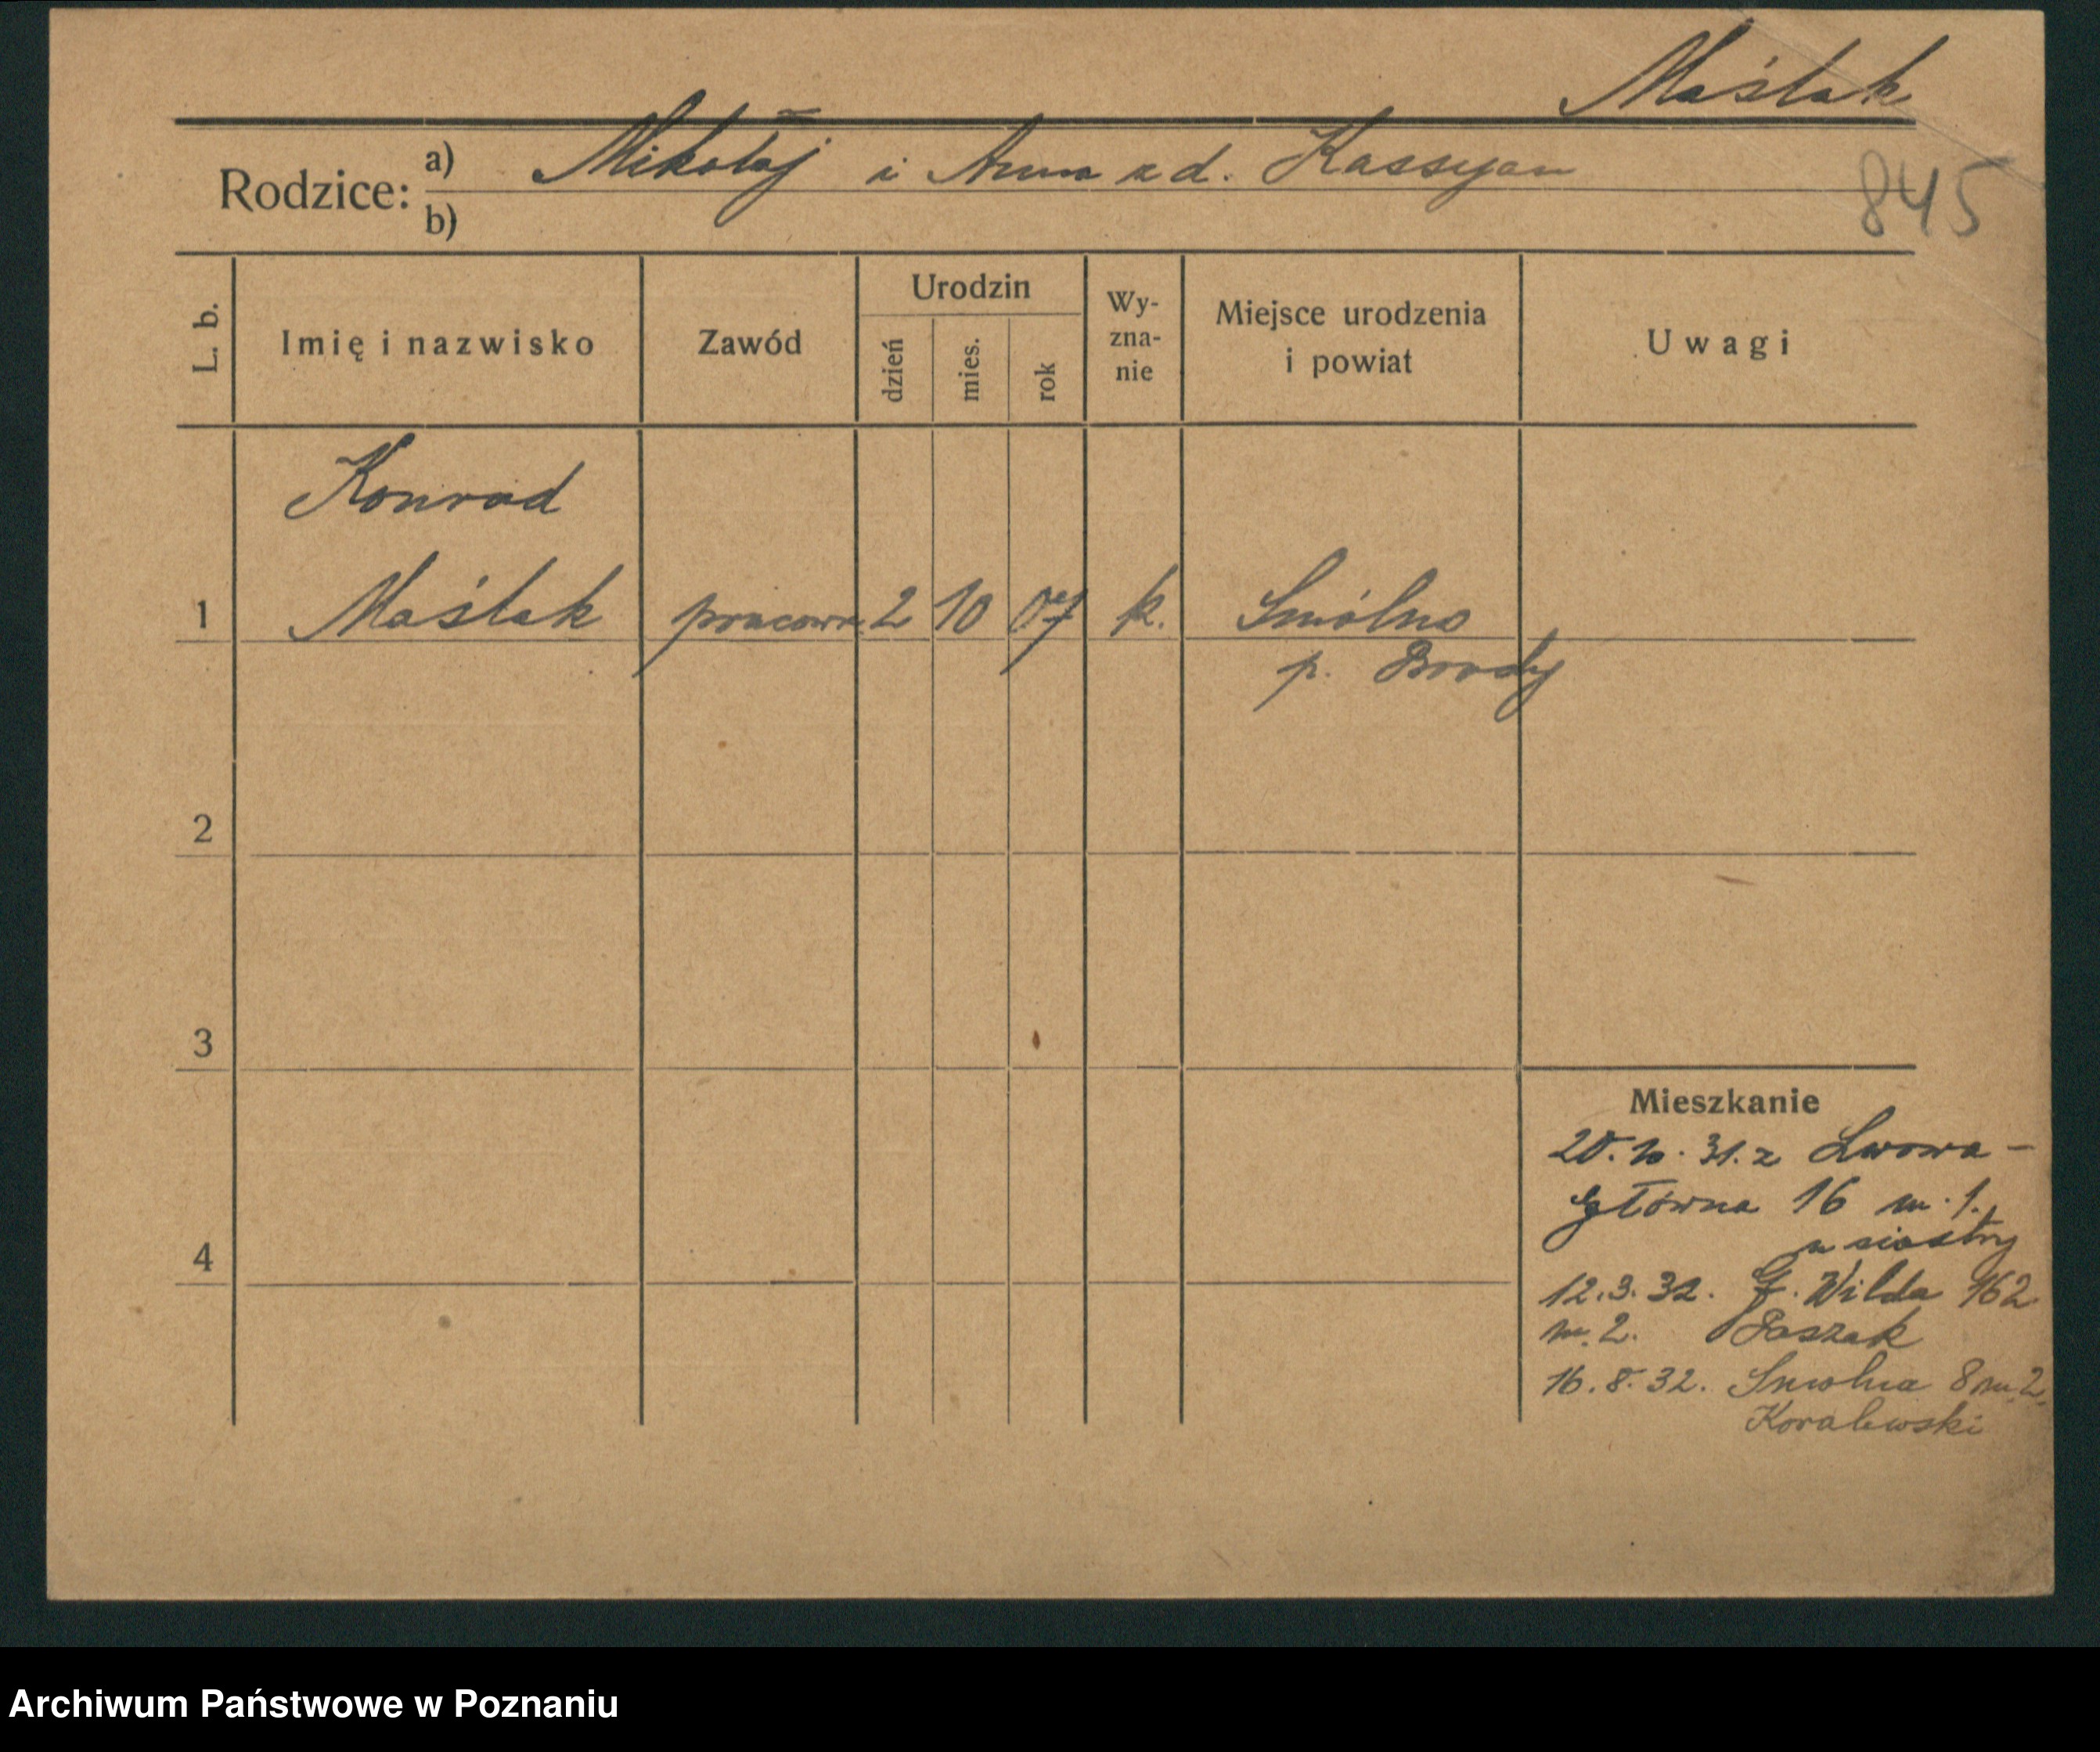 Maślak
Rodzice: a) Mikołaj i Anna z d. Kassyan
b)
845
L. b.
Imię i nazwisko
Zawód
Urodzin
dzień
mies.
rok
Wy-
zna-
nie
Miejsce urodzenia
i powiat
Uwagi
Konrad
1 Maślak pracown. 2 10 07 k. Smólno
p. Brody
2
3
Mieszkanie
20. 10. 31. z Lwowa –
Główna 16 m. 1.
u siostry
4
12.3.32. G. Wilda 162
m. 2.
16. 8. 32. Smolna 8 m. 2.
Koralewski
Archiwum Państwowe w Poznaniu